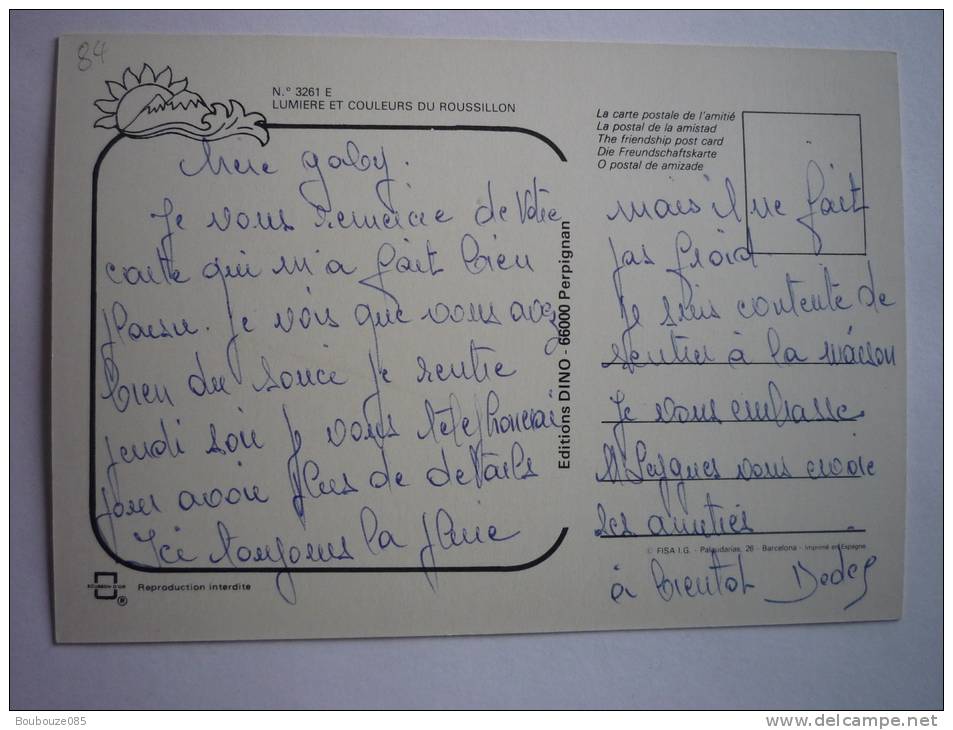 84
N.° 3261 E
LUMIERE ET COULEURS DU ROUSSILLON
Chère gaby.
Je vous remercie de votre
carte qui m'a fait bien
plaisir. Je vois que vous avez
bien du souci je rentre
jeudi soir je vous téléphonerai
pour avoir plus de details
Ici toujours la pluie
Reproduction interdite
Editions DINO - 66000 Perpignan
La carte postale de l'amitié
La postal de la amistad
The friendship post card
Die Freundschaftskarte
O postal de amizade
mais il ne fait
pas froid.
Je suis contente de
rentrer à la maison
Je vous embrasse
vous envoie
ses amitiés
© FISA I.G. - Palaudarias, 26 - Barcelona - Imprimé en Espagne
à bientot Dedee
Boubouze085
www.delcampe.net